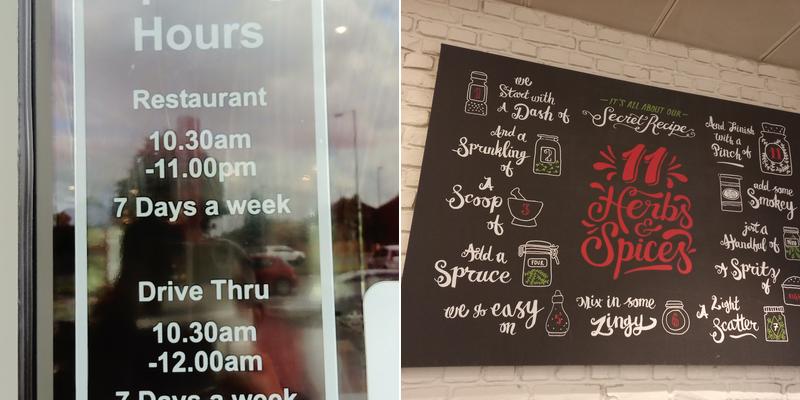 Hours
Restaurant
10.30am
-11.00pm
7 Days a week
Drive Thru
10.30am
-12.00am
7 Days a week
we
Start with
A Dash of
1
And a
Sprinkling
of
2
A
Scoop
of
3
Add a
Spruce
FOUR
we go easy
on
5
IT'S ALL ABOUT OUR
Secret Recipe
11
Herbs
&
Spices
Mix in some
Zingy
6
And Finish
with a
Pinch of
11
add some
Smokey
just a
Handful of
A Spritz
of
A Light
Scatter
7